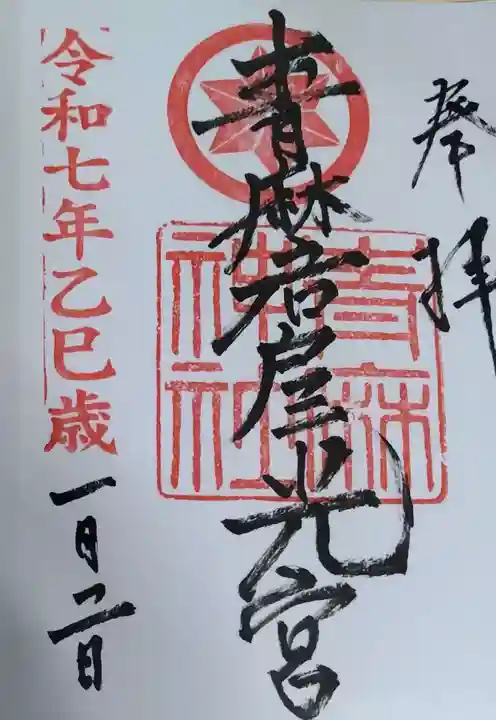 奉拝
青麻岩屋三光宮
青麻
神社
令和七年乙巳歳
一月二日